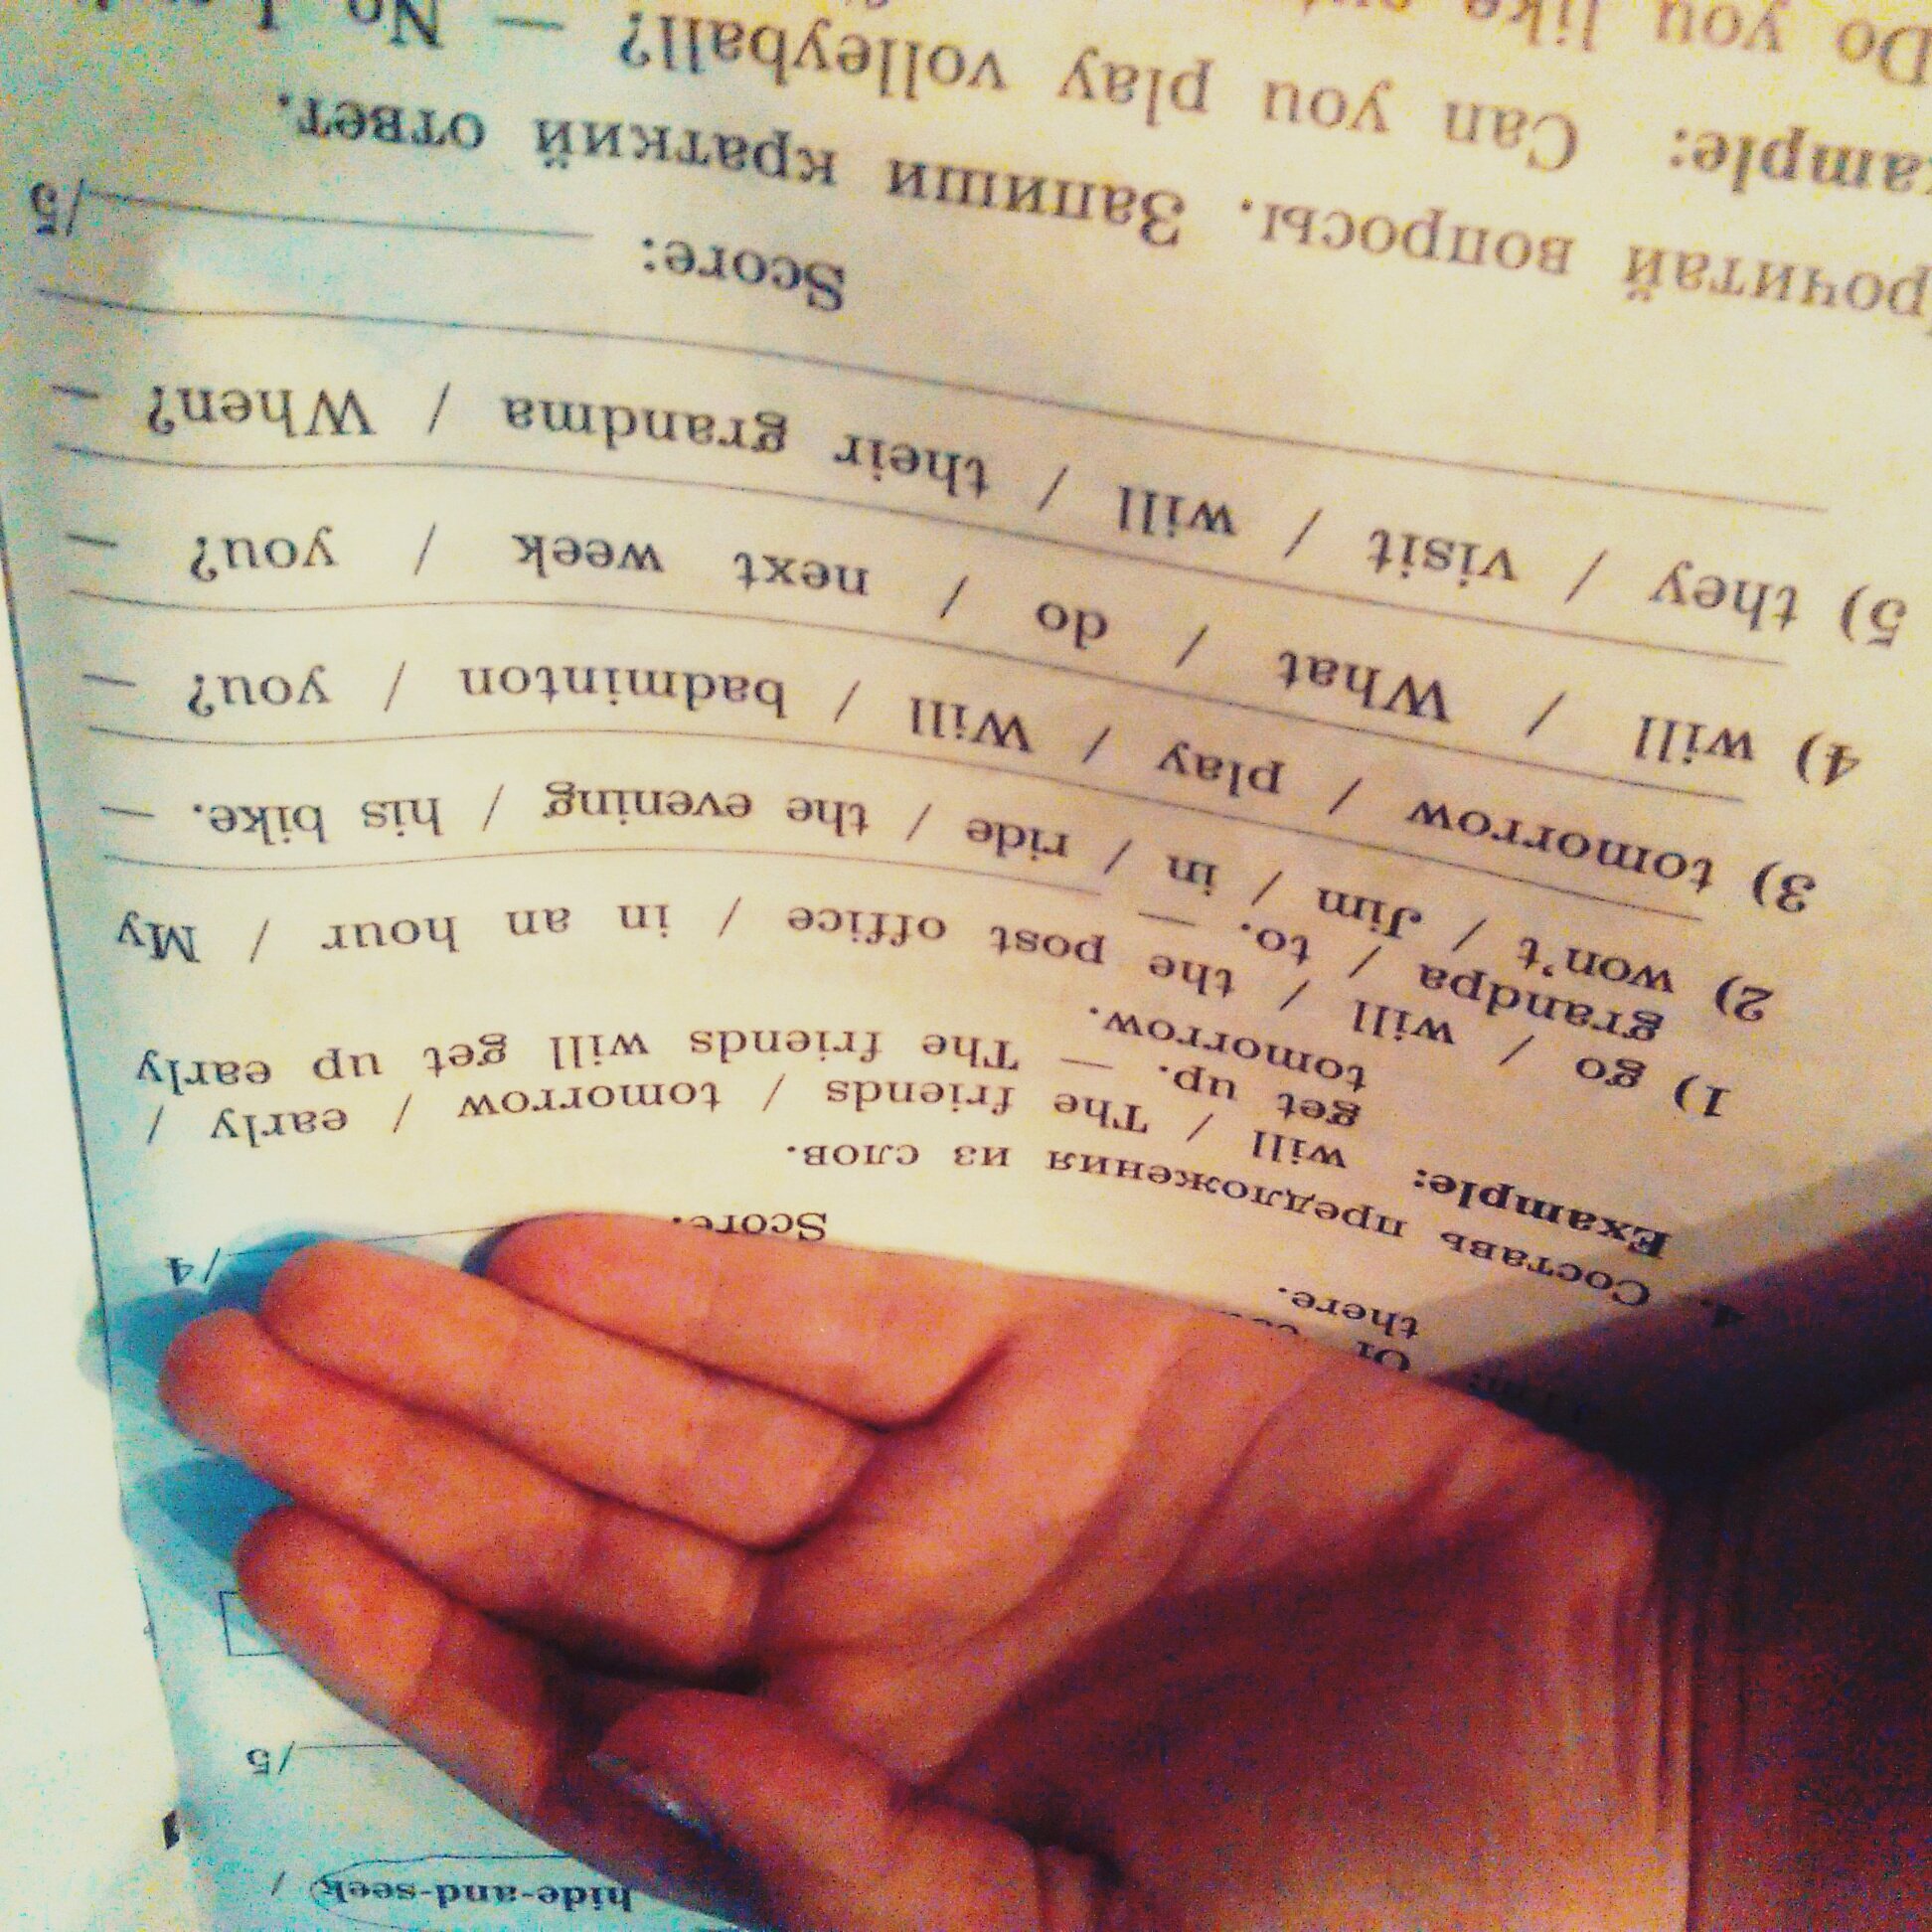 hide-and-seek /
/5
there.
Score: /4
4. Составь предложения из слов.
Example: will / The friends / tomorrow / early /
get up. — The friends will get up early
tomorrow.
1) go / will / the post office / in an hour / My
grandpa / to. —
2) won't / Jim / in / ride / the evening / his bike. —
3) tomorrow / play / Will / badminton / you? —
4) will / What / do / next week / you? —
5) they / visit / will / their grandma / When? —
Score: /5
рочитай вопросы. Запиши краткий ответ.
ample: Can you play volleyball? — No, I
Do you like